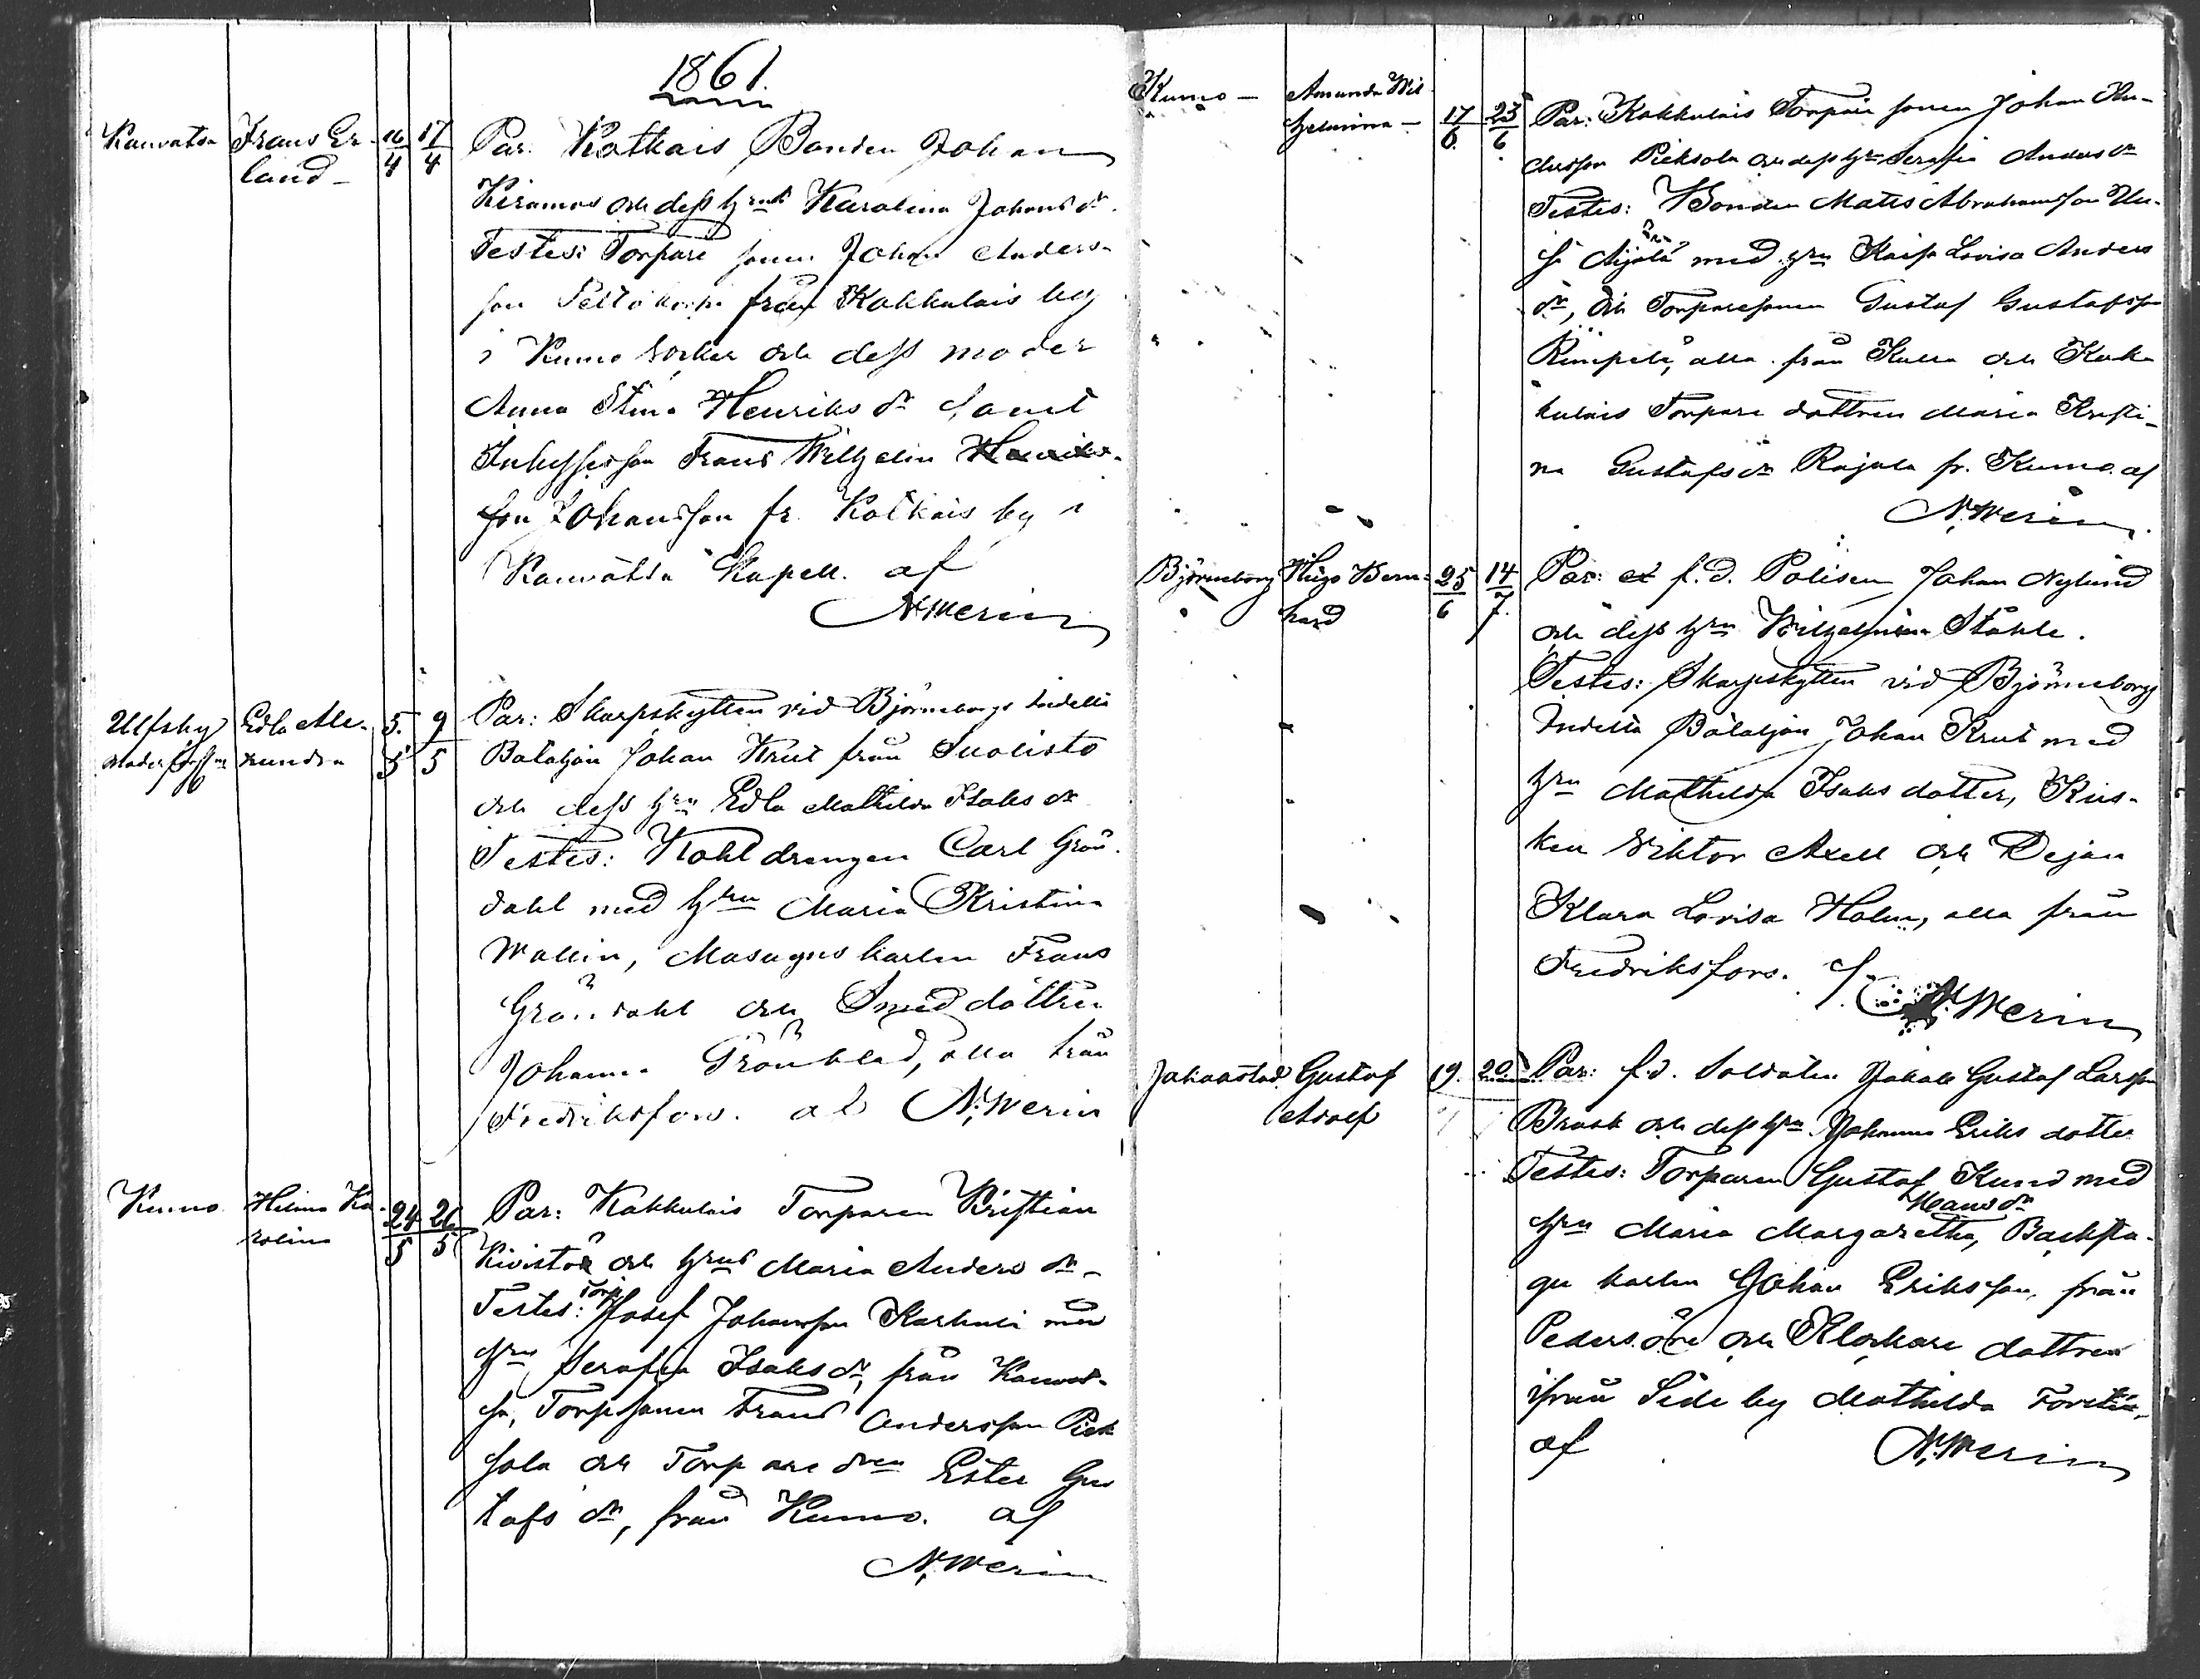 1861.
Kauvatsa Frans Er- 16/4 17/4 Par. Kotkais Bonden Johan
land - Kiramas och dess hru Karolina Johansdr.
Testes: Torpare sonen Johan Anders-
son från Kakkulais by
i Kumo Socken och dess moder
Anna Stina Henriksdr samt
Inhysesson Frans Wilhelm
Johansson fr. Kotkais by i
Kauvatsa Kapell. af
N. Werin
Ulfsby Edla Ale- 5/5 9/5 Par: Skarpskytten vid Björneborgs Indelta
xandra Bataljon Johan Krut från Suolisto
och dess hru Edla Mathilda Isaksdr
Testes: Kohldrengen Carl Grön-
dahl med hru Maria Kristina
Wallin, Masugnskarlen Frans
Gröndahl och Smeddottren
Johanna Grönblad, alla från
Fredriksfors. af N. Werin
Kumo Helina Ka- 24/5 26/5 Par: Kakkulais Torparen Kristian
rolina Kivistö och hru Maria Andersdr -
Testes: Torp Josef Johansson Karhuni med
hru Serafia Isaksdr, från Kauvat-
sa, Torpsonen Frans Andersson Piek
sola och Torparedren Ester Gus
tafsdr, från Kumo. af
N. Werin
Kumo - Amanda Wil-
helmina - 17/6 23/6 Par: Kakkulais Torpare sonen Johan An-
dersson Pieksola och dess hru Serafia Andersdr
Testes: Bonden Matts Abrahamsson
Äijälä med hru Kaisa Lovisa Anders
dr, och Torparesonen Gustaf Gustafsson
Rimpelä, alla från Kulla och Kak-
kulais Torpare dottren Maria Kristi-
na Gustafsdr Rajala fr. Kumo. af
N. Werin
Björneborg Hugo Bern- 25/6 14/7 Par: f.d. Polisen Johan Nylund
hard och dess hru Wilhelmina Ståhle.
Testes: Skarpskytten vid Björneborgs
Indelta Bataljon Johan Krut med
hru Mathilda Isaks dotter, Kus-
ken Viktor Axell och Pejan
Klara Lovisa Holm, alla från
Fredriksfors. af
N. Werin
Jakobstad Gustaf 19. 20. Par: f.d. Soldaten Jakob Gustaf Larsson
Adolf Brask och dess hru Johanna Eriks dotter
Testes: Torparen Gustaf Kund med
hru Maria Margaretha Hansdr, Backstu-
gu karlen Johan Eriksson, från
Pedersöre och Klockare dottren
ifrån Side by Mathilda
af N. Werin